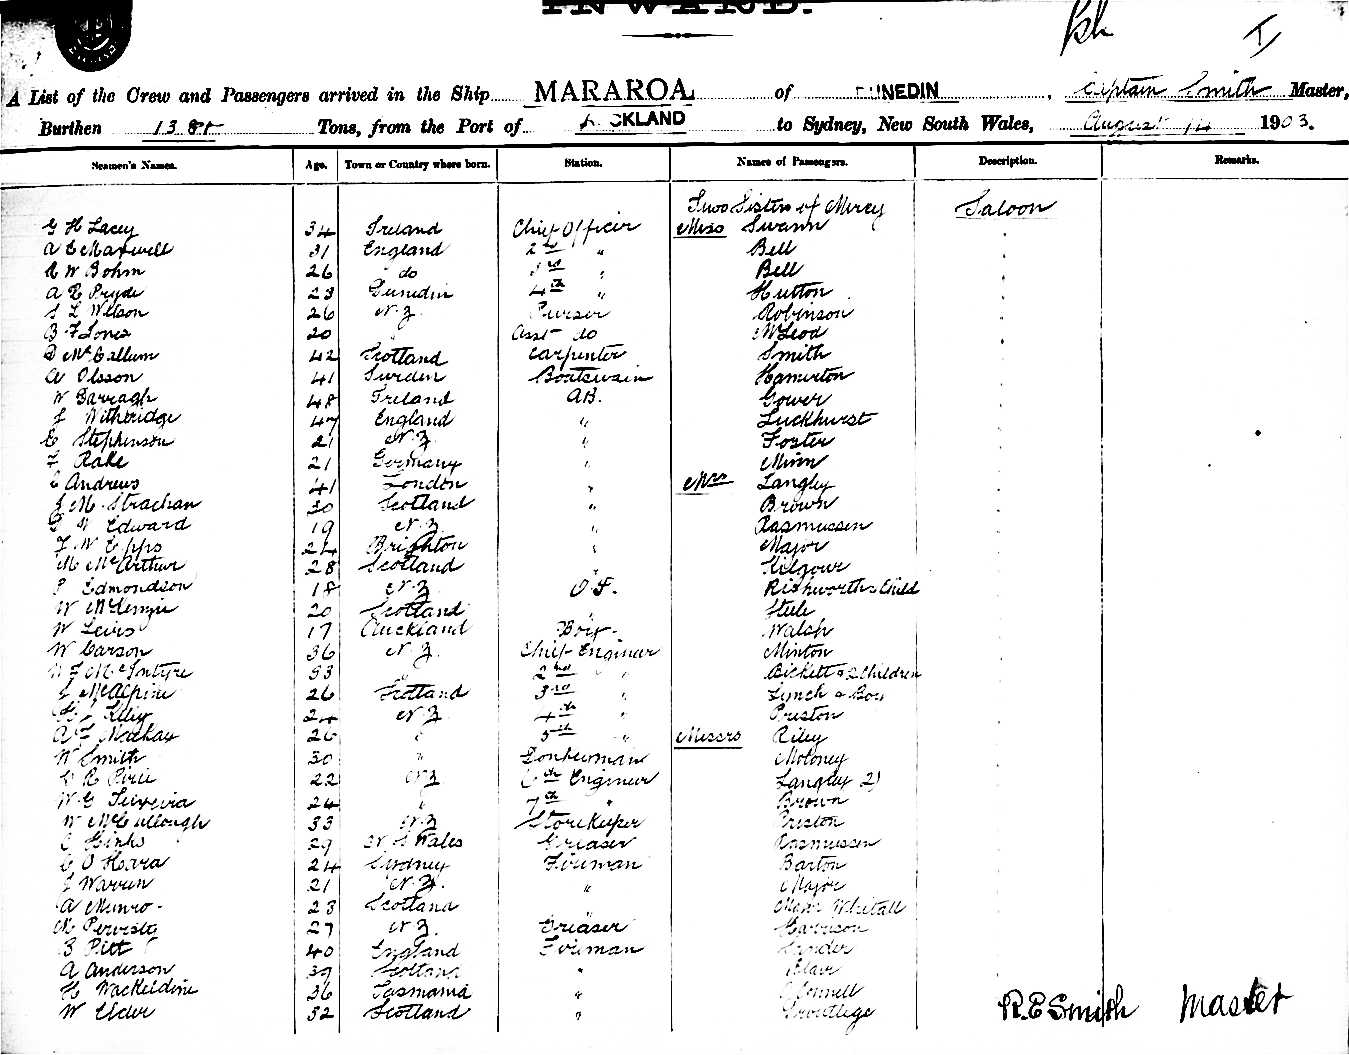 INWARD.
A List of the Crew and Passengers arrived in the Ship MARAROA of DUNEDIN, Captain Smith Master,
Burthen 1381 Tons, from the Port of AUCKLAND to Sydney, New South Wales, August 14 1903.
Seamen's Names. Age. Town or Country where born. Station. Names of Passengers. Description. Remarks.
Two Sisters of Mercy Saloon
G H Lacey 34 Ireland Chief Officer Miss Swann
A E Maxwell 31 England 2nd " Bell
W Bohm 26 do 3rd " Bell
A E Pryde 23 Dunedin 4th " Hutton
L Wilson 26 N.Z. Purser Robinson
B F Jones 20 " Asst do McLeod
D McCallum 42 Scotland Carpenter Smith
A Olsson 41 Sweden Boatswain Hamerton
W Darragh 48 Ireland A.B. Gower
J Witheridge 47 England " Luckhurst
C Stephenson 21 N.Z. " Foster
F Rake 21 Germany " Minn
C Andrews 41 London " Mrs Langley
J M Strachan 30 Scotland " Brown
G W Edward 19 N.Z. " Rasmussen
F W Epps 24 Brighton " Major
M McArthur 28 Scotland " Kilgour
P Edmondson 18 N.Z. O.S. Rishworth & Child
W McKenzie 20 Scotland " Steele
W Lewis 17 Auckland Boy Walsh
W Carson 36 N.Z. Chief Engineer Minton
McIntyre 33 " 2nd " Bickett & 2 Children
McAlpine 26 Scotland 3rd " Lynch & Boy
Kelly 24 N.Z. 4th " Preston
A Mackay 26 " 5th " Messrs Riley
W Smith 30 " Donkeyman Moloney
R Pirie 22 N.Z. 6th Engineer Langley 2)
W G Teixeira 24 " 7th " Brown
W McCullough 33 N.Z. Storekeeper Preston
C Hinks 29 N S Wales Greaser Rasmussen
C O'Hara 24 Sydney Fireman Barton
J Warren 21 N.Z. " Major
A Munro 23 Scotland " Major Whitall
M 27 N.Z. Greaser Harrison
B Pitt 40 England Fireman Sander
A Anderson 39 Scotland " Blair
H Mackeldine 36 Tasmania " O'Connell
W Elder 32 Scotland " Routlege R. E Smith Master